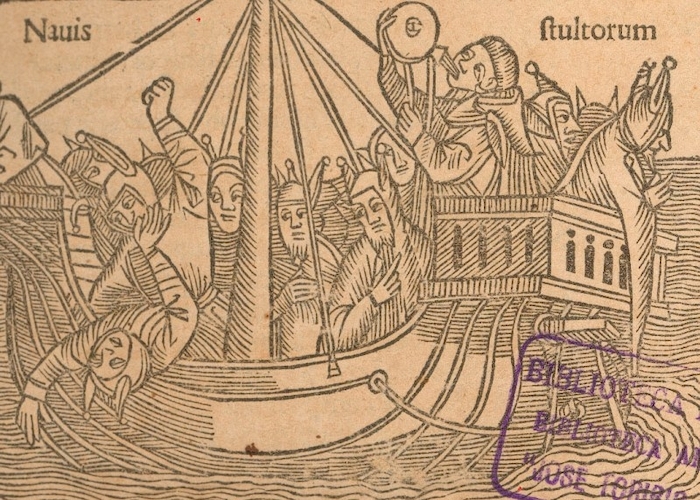 Nauis ſtultorum
BIBLIOTECA
BIBLIOTECA
"JOSE